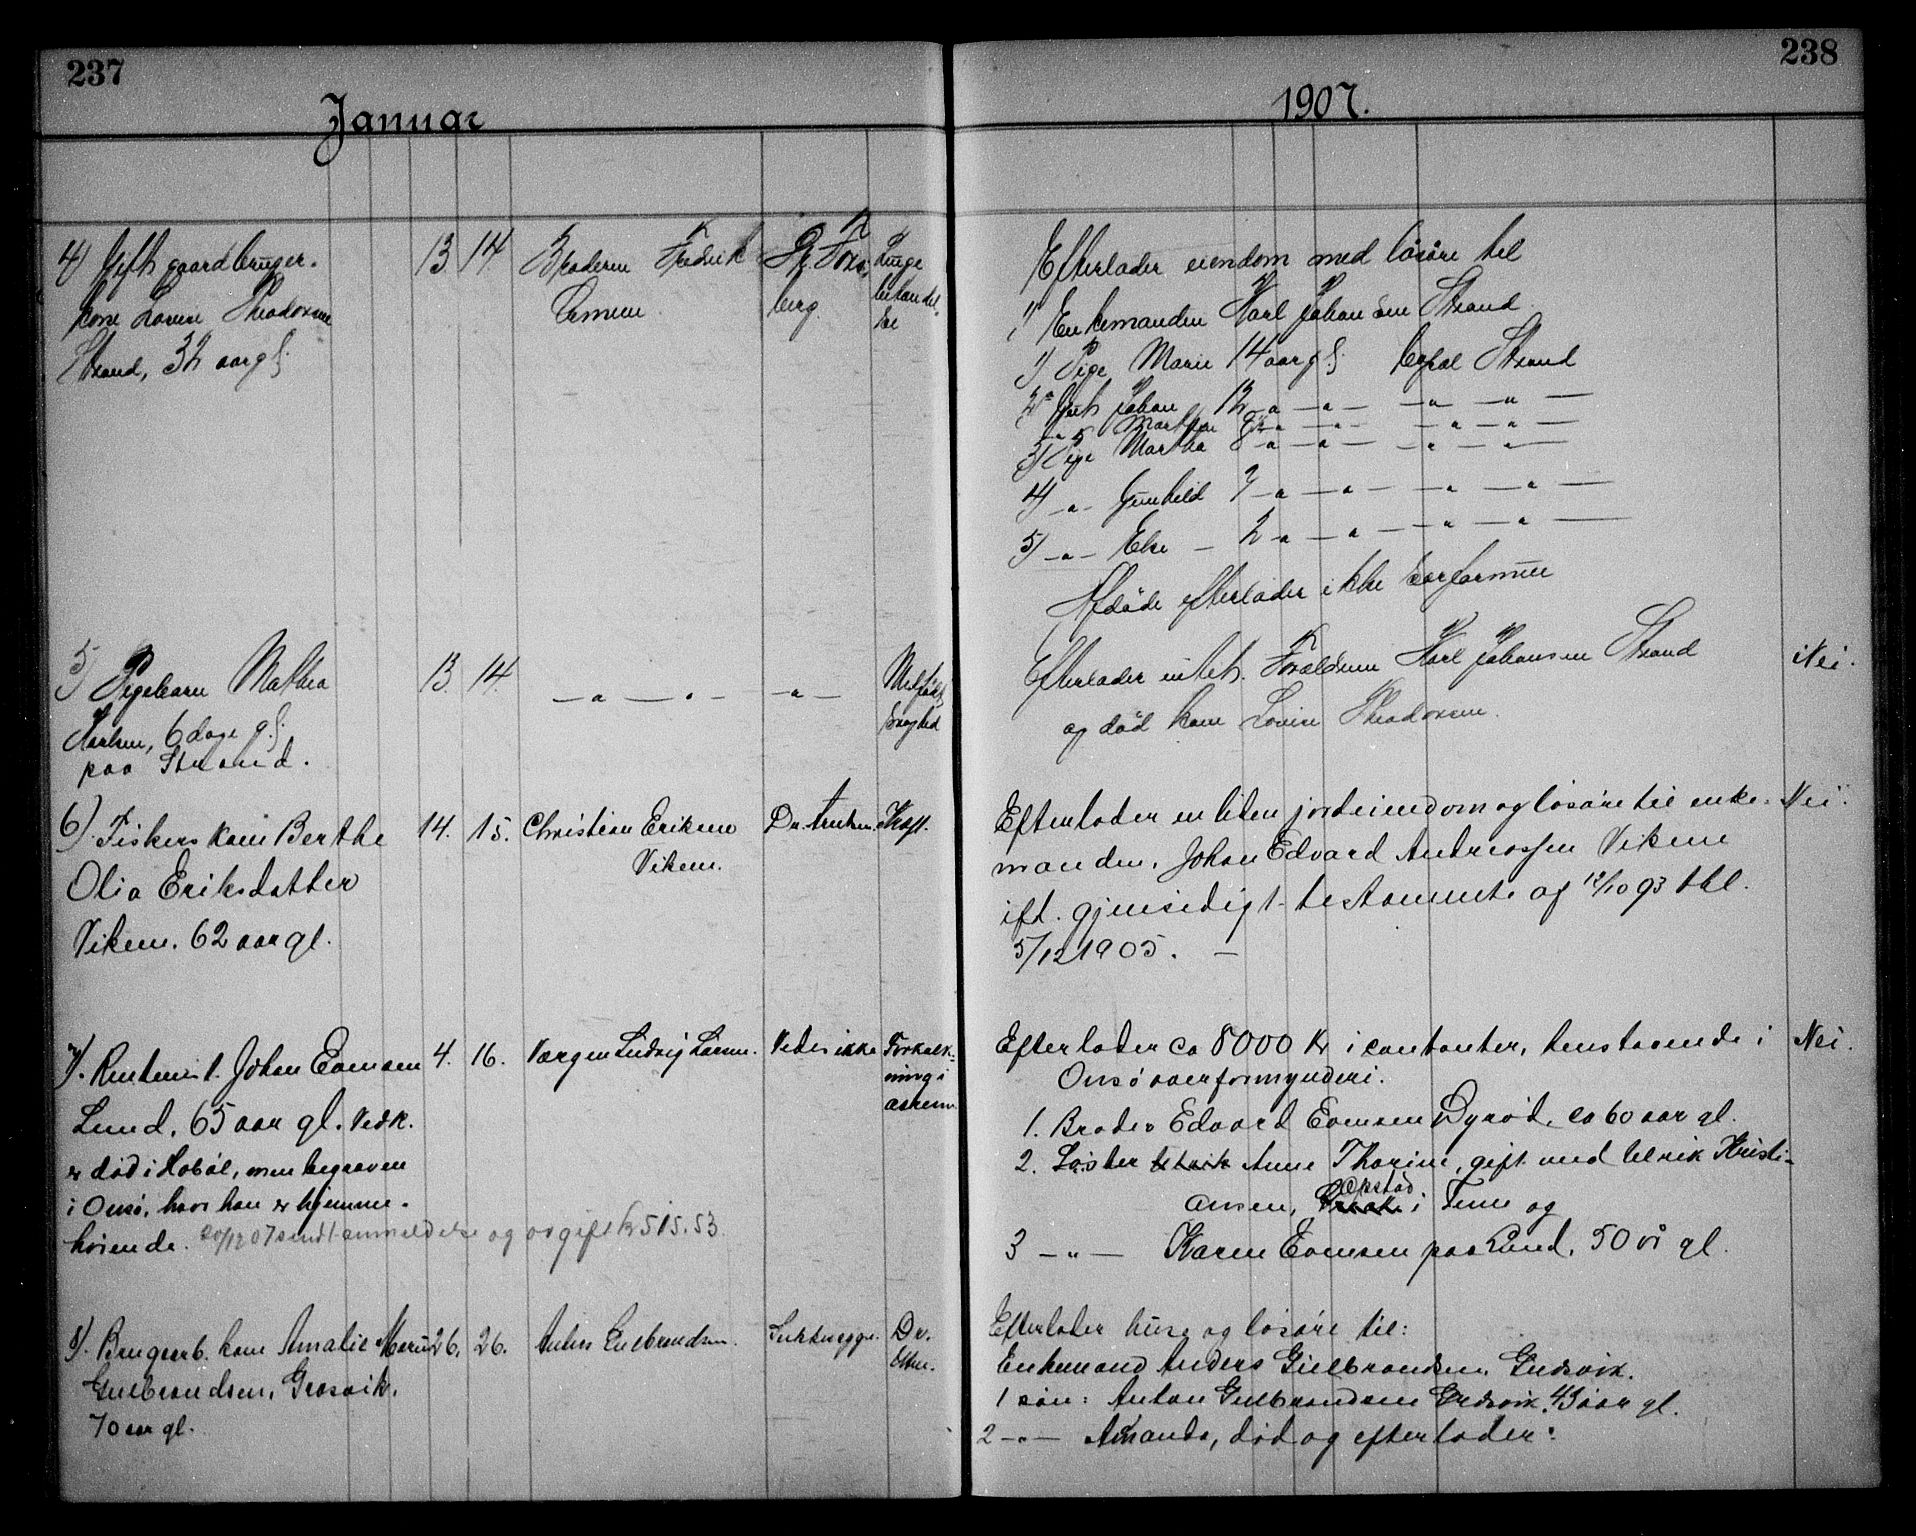 237
Januar
4) Gift gaardbruger-
kone Lovise Theodorsen
Strand, 32 aar gl.
13 14 Broderen Fredrik
Dr. Fors-
berg
Lunge
betændel-
se
5) Pigebarn Mathea
Karlsen, 6 dage gl.
paa Strand.
13. 14. — " — " — — " —
Medfødt
svaghed
6). Fiskerskone Berthe
Olia Eriksdatter
Viken. 62 aar gl.
14. 15. Christian Eriksen
Viken.
Dr. Arentsen. Kræft.
7). Rentenist. Johan Evensen
Lund, 65 aar gl. Vedk.
er død i Hobøl, men begraven
i Onsø, hvor han er hjemme-
hørende. 20/12 07 sendt anmeldelse og avgift kr 515.53
4. 16. Værgen Ludvig Larsen. Vides ikke
Forkalk-
ning i
8). Brugsarb. kone Amalie Marie
Gulbrandsen, Græsvik.
70 aar gl.
26. 26. Anders Gulbrandsen.
Dr.
238
1907.
Efterlader eiendom med løsøre til
Enkemanden Karl Johansen Strand
1) Pige Marie 14 aar gl. bopæl Strand
2) Gut Johan 12 — " — " — — " — " —
3) Pige Martha 8 — " — " — — " — " —
4) — " — Gunhild 7 — " — " — — " — " —
5) — " — Else — 2 — " — " — — " — " —
Afdøde efterlader ikke særformue
Efterlader intet. Forældrene Karl Johansen Strand
og død kone Lovise Theodorsen.
Nei.
Efterlader en liten jordeiendom og løsøre til enke-
manden. Johan Edvard Andreassen Viken
ift. gjensidigt testamente af 12/10 93 thl.
5/12 1905. —
Nei.
Efterlader ca 8000 kr i contanter, henstaaende i
Onsø overformynderi.
Nei.
1. Broder Edvard Evensen Dyrød, ca 60 aar gl.
2. Søster Anne Thorine, gift med Ulrik Kristi-
ansen, Opstad i Tune og
3 — " — Karen Evensen paa Lund, 50 år gl.
Efterlader huse og løsøre til:
Enkemand Anders Gulbrandsen, Græsvik.
1 søn: Anton Gulbrandsen Græsvik, 43 aar gl.
2 — " — Amanda, død og efterlader: